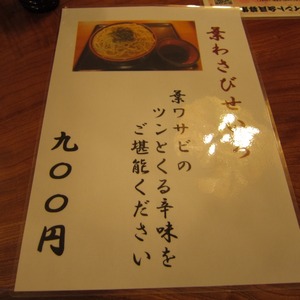 葉わさびせいろ
葉ワサビの
ツンとくる辛味を
ご堪能ください
九〇〇円